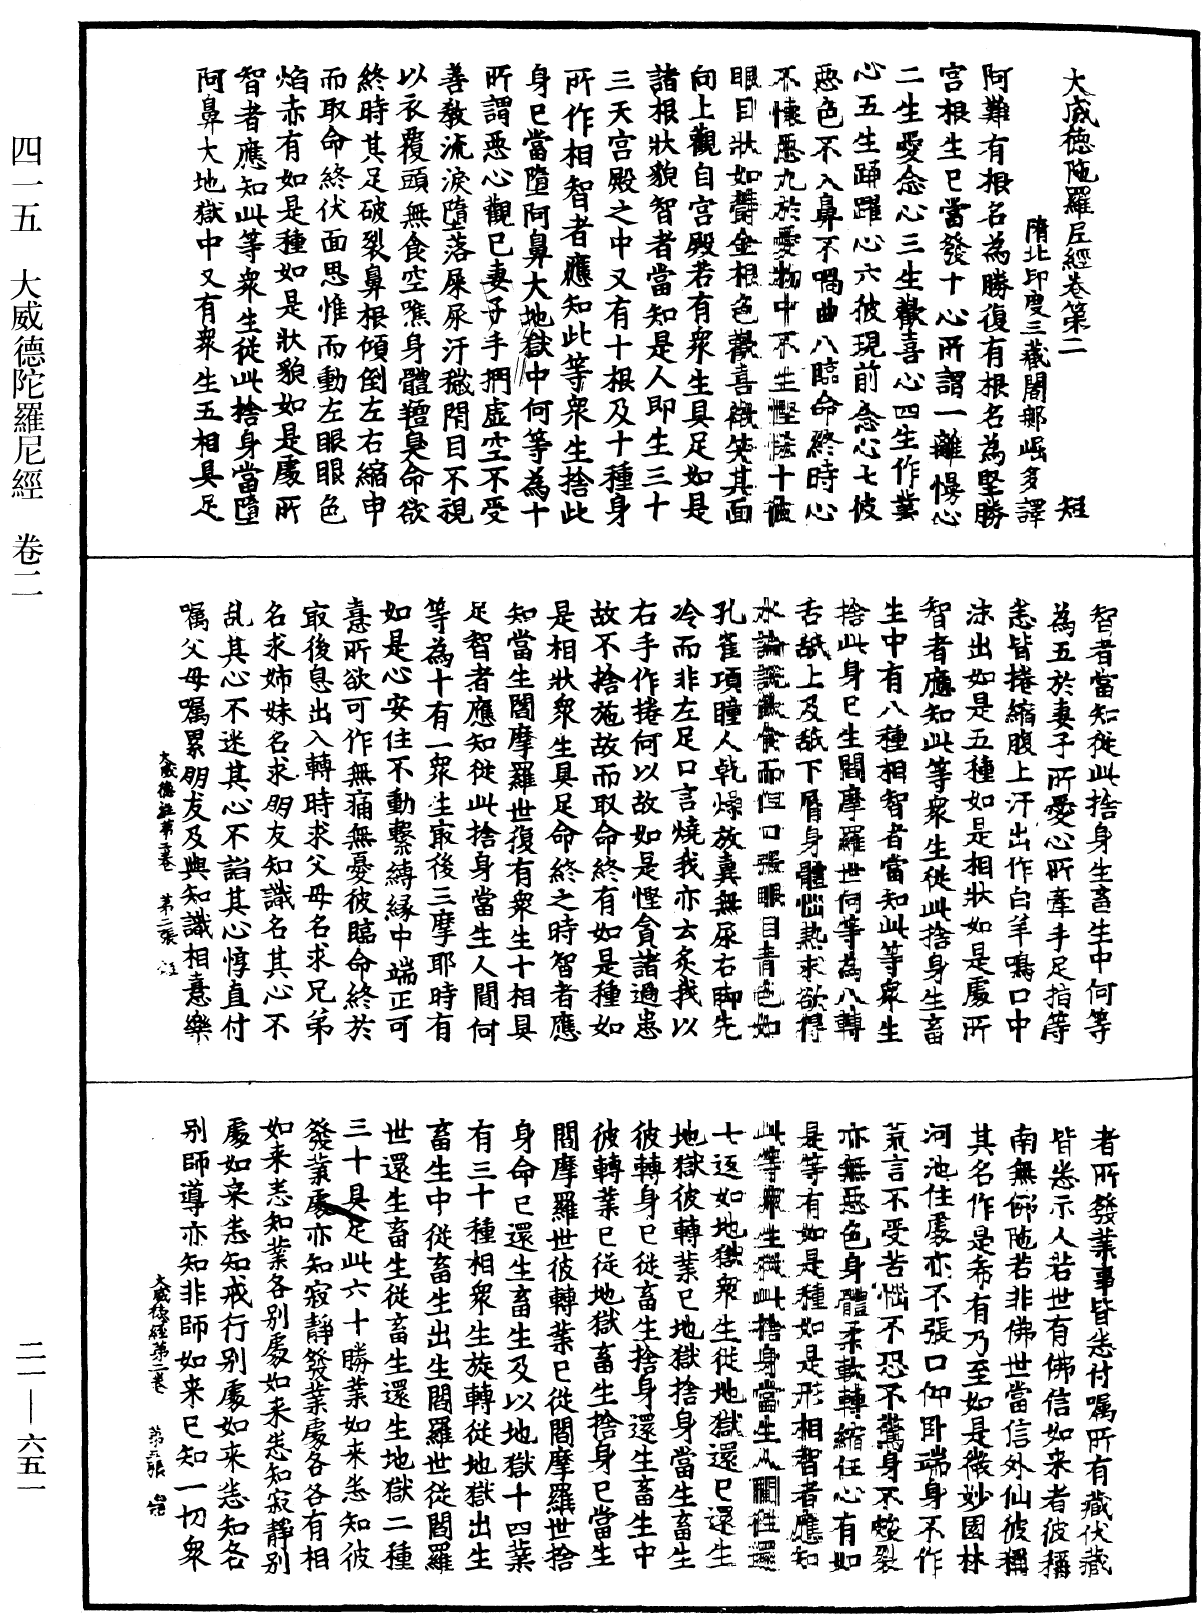 大威德陁羅尼經卷第二
短
隋北印度三藏闍那崛多譯
阿難有根名為勝復有根名為堅勝
宫根生已當發十心所謂一離慢心
二生愛念心三生歡喜心四生作業
心五生踊躍心六彼現前念心七彼
惡色不入鼻不喎曲八臨命終時心
不懐惡九於愛物中不生慳悋十彼
眼目狀如鑄金根色歡喜微笑其面
向上觀自宫殿若有衆生具足如是
諸根狀貌智者當知是人即生三十
三天宫殿之中又有十根及十種身
所作相智者應知此等衆生捨此
身已當墮阿鼻大地獄中何等為十
所謂惡心觀已妻子手捫虛空不受
善教流淚墮落屎尿汙穢閇目不視
以衣覆頭無食空譙身體羶臭命欲
終時其足破裂鼻根傾倒左右縮申
而取命終伏面思惟而動左眼眼色
焰赤有如是種如是狀貌如是處所
智者應知此等衆生從此捨身當墮
阿鼻大地獄中又有衆生五相具足
智者當知從此捨身生畜生中何等
為五於妻子所愛心所牽手足指等
悉皆捲縮腹上汗出作白羊鳴口中
沫出如是五種如是相狀如是處所
智者應知此等衆生從此捨身生畜
生中有八種相智者當知此等衆生
捨此身已生閻摩羅世何等為八轉
舌舐上及舐下脣身體惱熱求欲得
水論說飲食而但口張眼目青色如
孔雀項瞳人乹燥放糞無尿右脚先
冷而非左足口言燒我亦云炙我以
右手作捲何以故如是慳貪諸過恙
故不捨施故而取命終有如是種如
是相狀衆生具足命終之時智者應
知當生閻摩羅世復有衆生十相具
足智者應知從此捨身當生人間何
等為十有一衆生最後三摩耶時有
如是心安住不動繫縛縁中端正可
憙所欲可作無痛無憂彼臨命終於
最後息出入轉時求父母名求兄弟
名求姉妹名求朋友知識名其心不
乱其心不迷其心不諂其心惇直付
囑父母囑累朋友及與知識相憙樂
大威德經第二卷 第二張 短
者所發業事皆悉付囑所有藏伏藏
皆悉示人若世有佛信如来者彼稱
南無佛陁若非佛世當信外仙彼稱
其名作是希有乃至如是微妙園林
河池住處亦不張口仰卧端身不作
荒言不受苦惱不恐不驚身不皴裂
亦無惡色身體柔軟轉縮任心有如
是等有如是種如是形相智者應知
此等衆生從此捨身當生人間往還
七返如地獄衆生從地獄還已還生
地獄彼轉業已地獄捨身當生畜生
彼轉身已從畜生捨身還生畜生中
彼轉業已從地獄畜生捨身已當生
閻摩羅世彼轉業已從閻摩羅世捨
身命已還生畜生及以地獄十四業
有三十種相衆生旋轉從地獄出生
畜生中從畜生出生閻羅世從閻羅
世還生畜生從畜生還生地獄二種
三十具足此六十勝業如来悉知彼
發業處亦知寂靜發業處各各有相
如来悉知業各別處如来悉知寂靜別
處如来悉知戒行別處如来悉知各
別師導亦知非師如来已知一切衆
大威德經第二卷 第三張 短
四一五 大威德陀羅尼經 卷二
二一—六五一